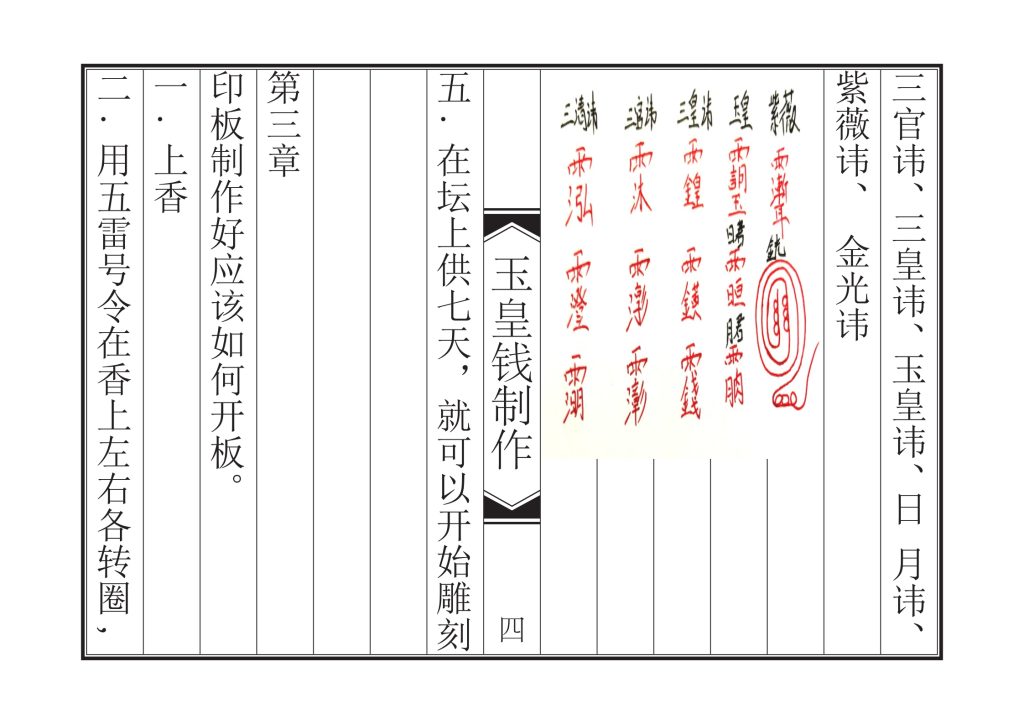 三官讳、三皇讳、玉皇讳、日 月讳、
紫薇讳、 金光讳
紫薇
玉皇
三皇讳
三官讳
三清讳
玉皇钱制作
四
五．在坛上供七天，就可以开始雕刻
第三章
印板制作好应该如何开板。
一．上香
二．用五雷号令在香上左右各转圈，